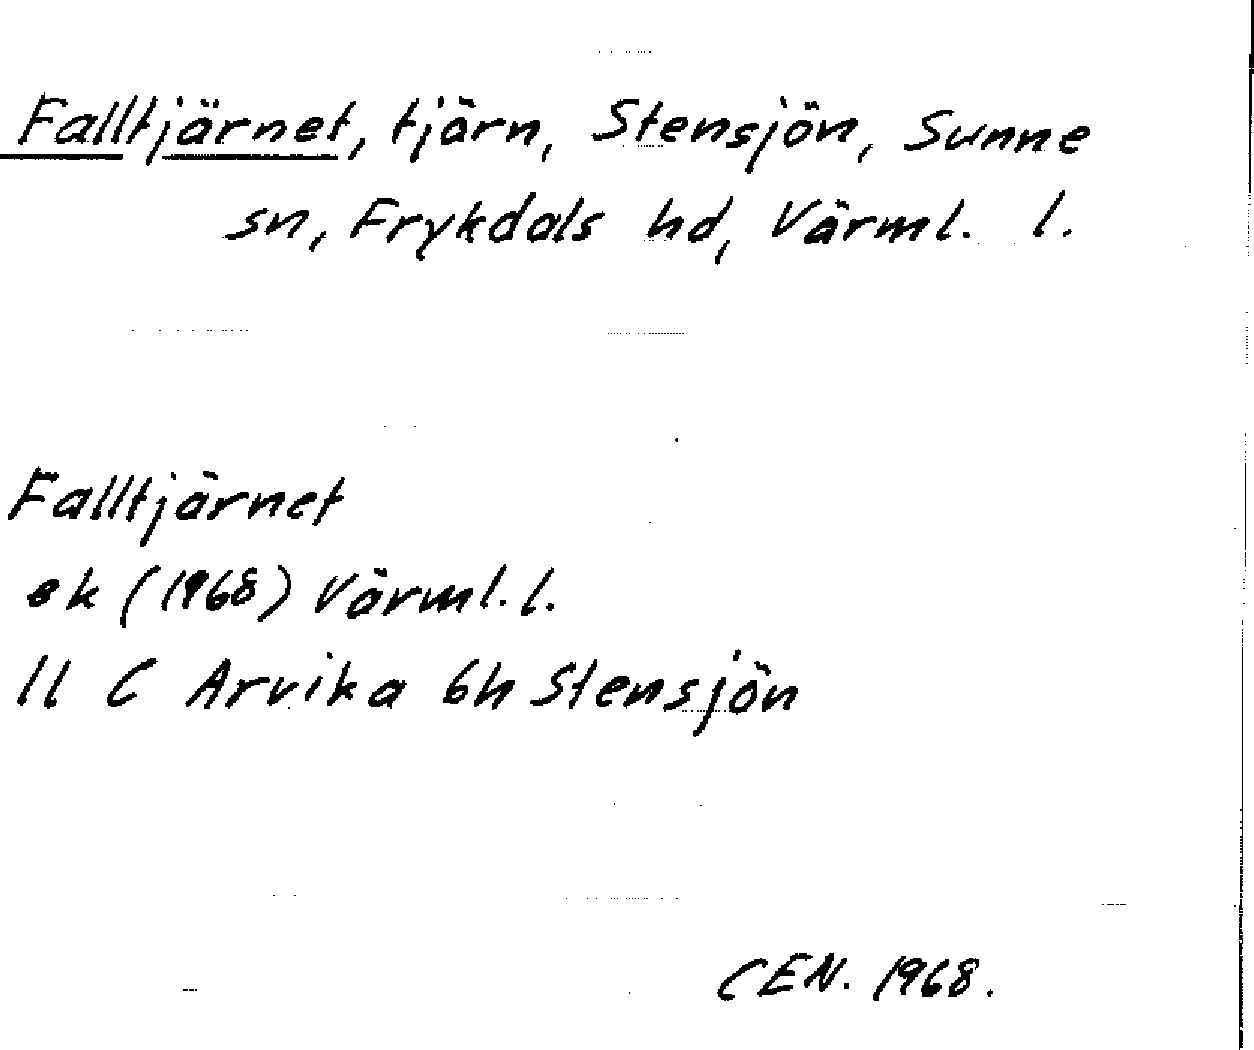 Falltjärnet, tjärn, Stensjön, Sunne
sn, Frykdals hd, Värml. l.
Falltjärnet
ek (1968) Värml. l.
11 C Arvika 6h Stensjön
CEN. 1968.